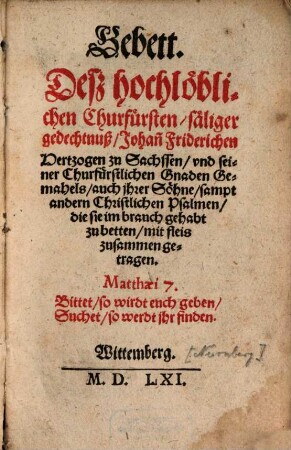 Gebett.
Deß hochlöbli-
chen Churfürsten/ säliger
gedechtnuß/ Johañ Friderichen
Hertzogen zu Sachssen/ vnd sei-
ner Churfürstlichen Gnaden Ge-
mahels/ auch jhrer Söhne/ sampt
andern Christlichen Psalmen/
die sie im brauch gehabt
zu betten/ mit fleis
zusammen ge-
tragen.
Matthæi 7.
Bittet/ so wirdt euch geben/
Suchet/ so werdt jhr finden.
Wittemberg. [Nürnberg]
M. D. LXI.